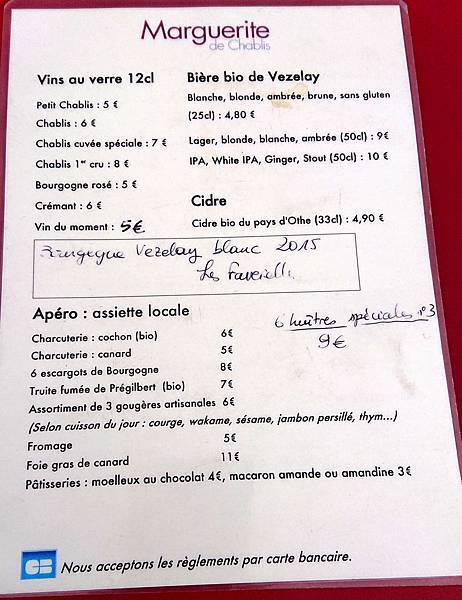 Marguerite
de Chablis
Vins au verre 12cl
Petit Chablis : 5 €
Chablis : 6 €
Chablis cuvée spéciale : 7 €
Chablis 1er cru : 8 €
Bourgogne rosé : 5 €
Crémant : 6 €
Vin du moment : 5€
Bière bio de Vezelay
Blanche, blonde, ambrée, brune, sans gluten
(25cl) : 4,80 €
Lager, blonde, blanche, ambrée (50cl) : 9€
IPA, White IPA, Ginger, Stout (50cl) : 10 €
Cidre
Cidre bio du pays d'Othe (33cl) : 4,90 €
Vezelay blanc 2015
Les
Apéro : assiette locale
Charcuterie : cochon (bio) 6€
Charcuterie : canard 5€
6 escargots de Bourgogne 8€
Truite fumée de Prégilbert (bio) 7€
Assortiment de 3 gougères artisanales 6€
(Selon cuisson du jour : courge, wakame, sésame, jambon persillé, thym...)
Fromage 5€
Foie gras de canard 11€
Pâtisseries : moelleux au chocolat 4€, macaron amande ou amandine 3€
6 huîtres spéciales n°3
9€
CB Nous acceptons les règlements par carte bancaire.